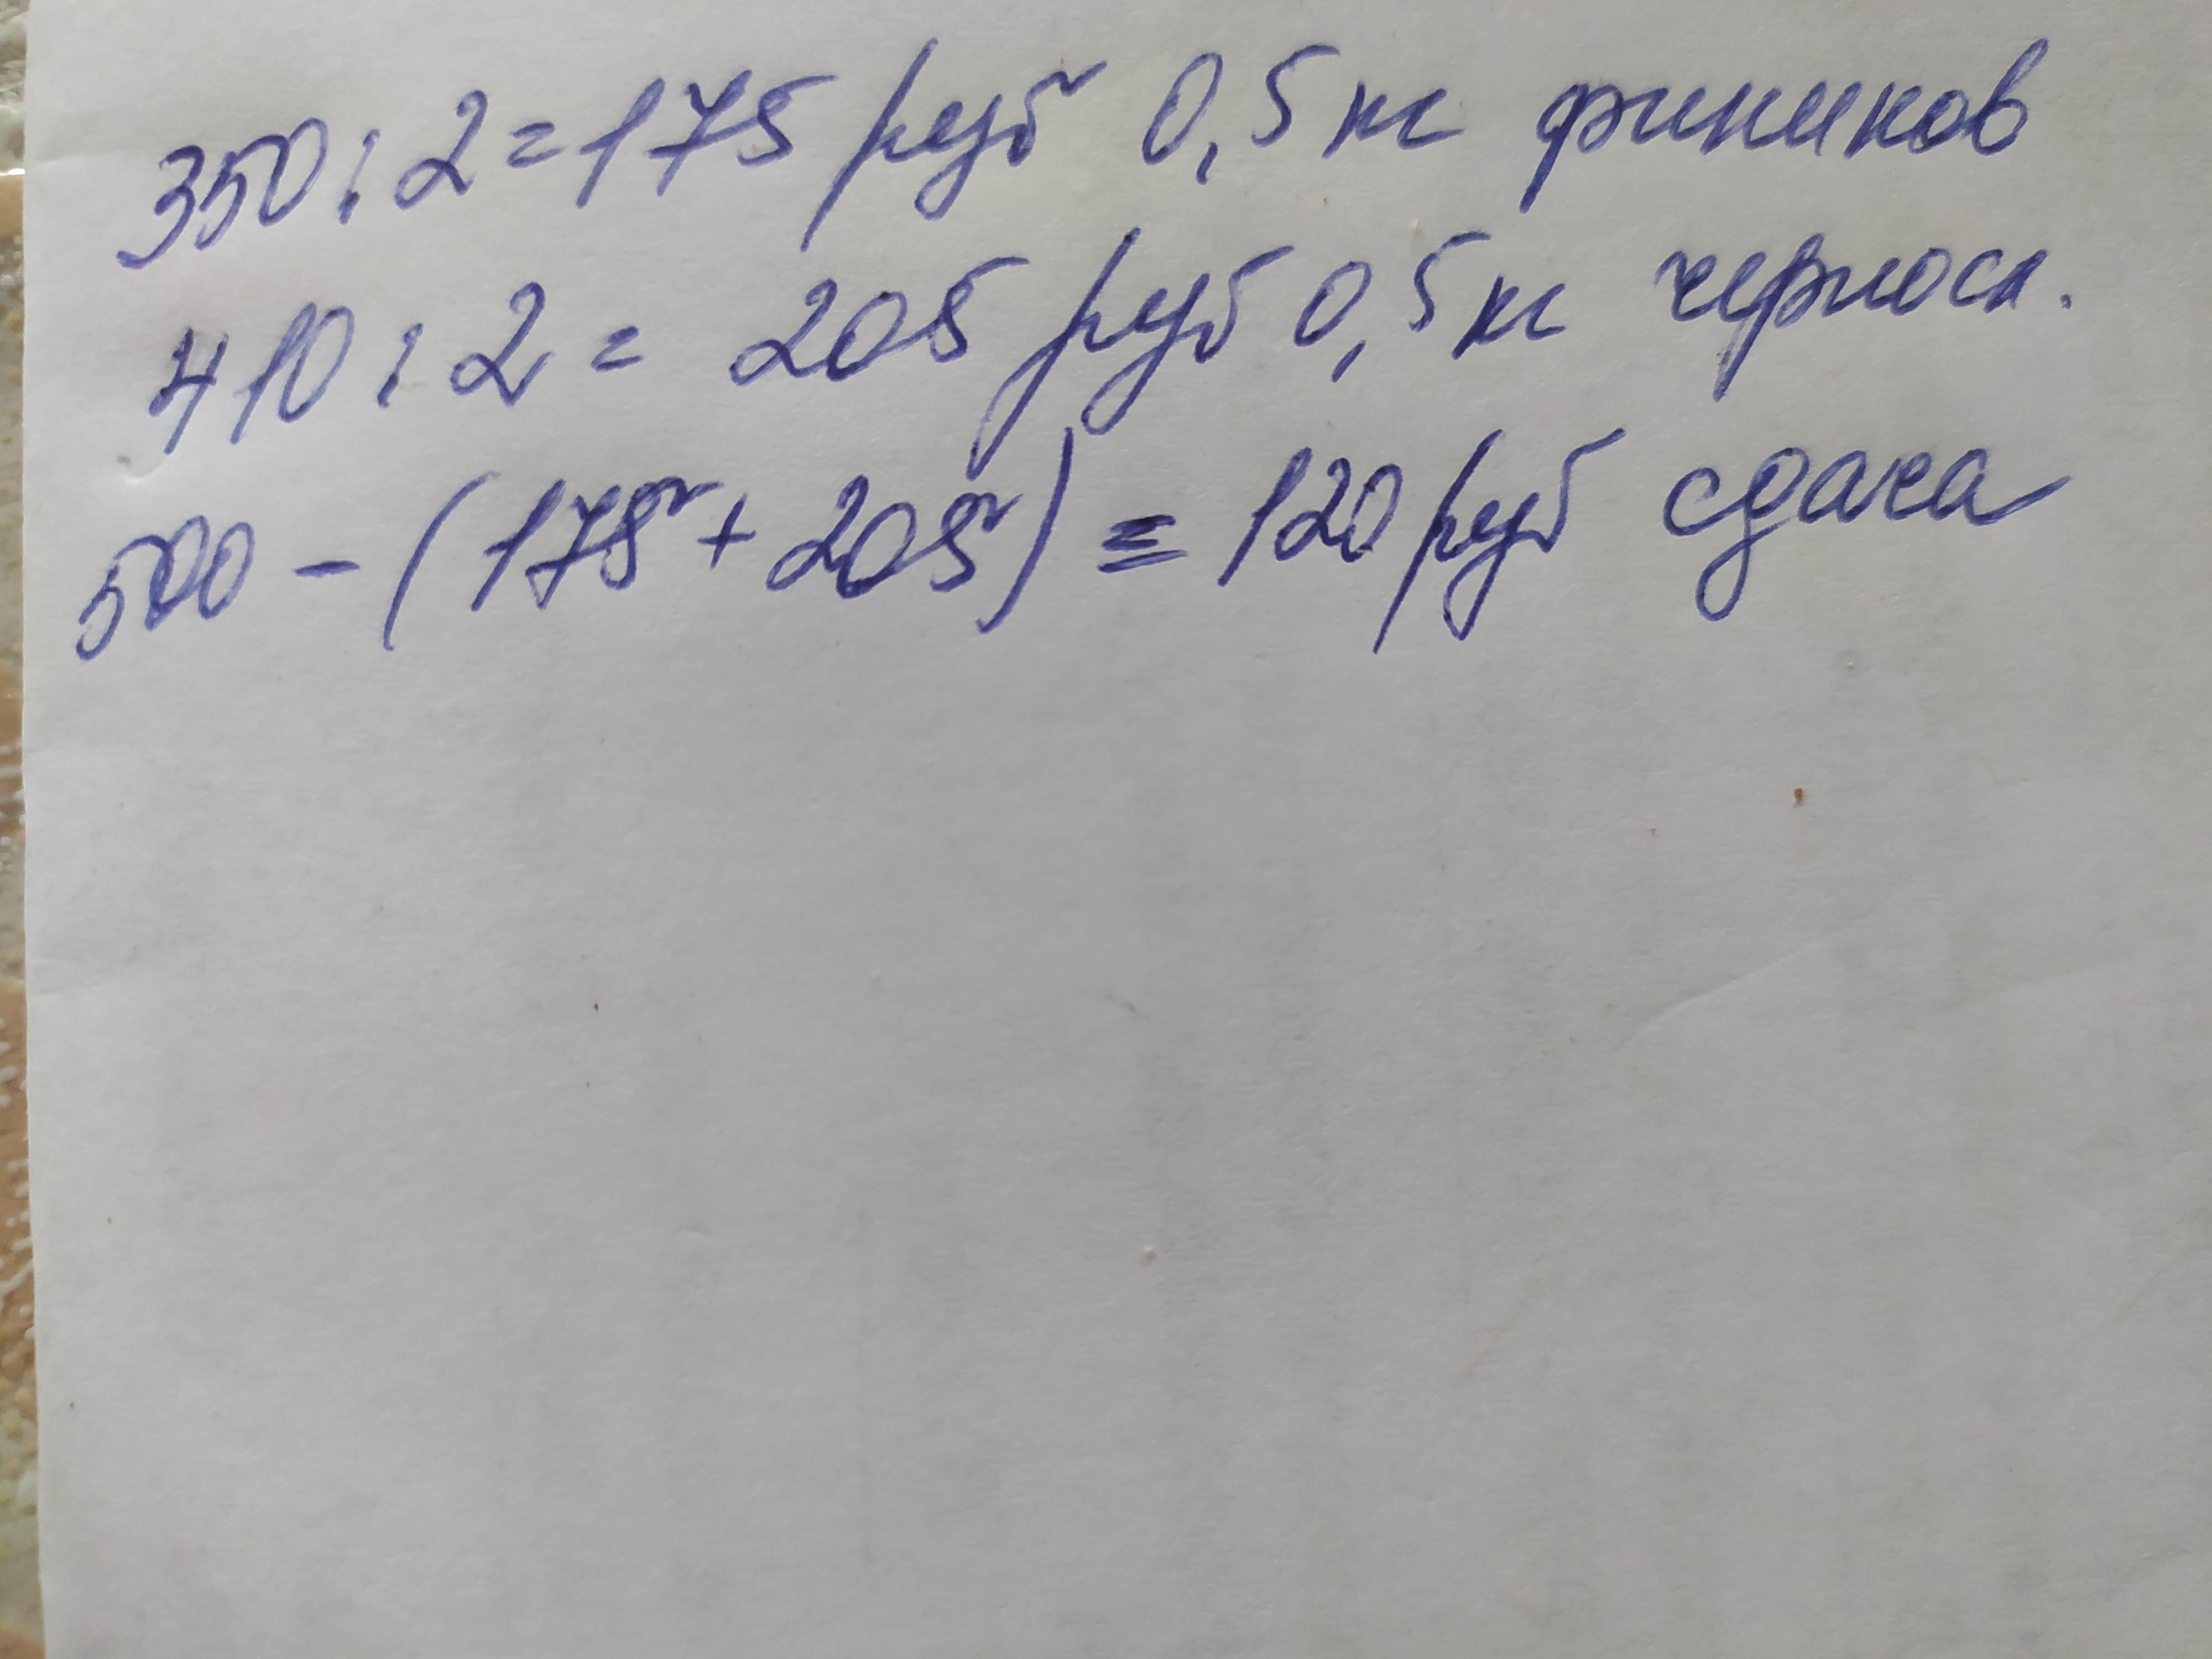 350:2=175 руб 0,5кг фиников
410:2= 205 руб 0,5кг черносл.
500-(175+205)=120 руб сдача